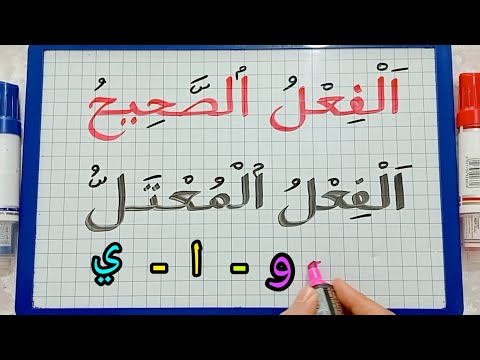 اَلْفِعْلُ اُلصَّحِيحُ
اَلْفِعْلُ اُلْمُعْتَلُّ
و - ا - ي